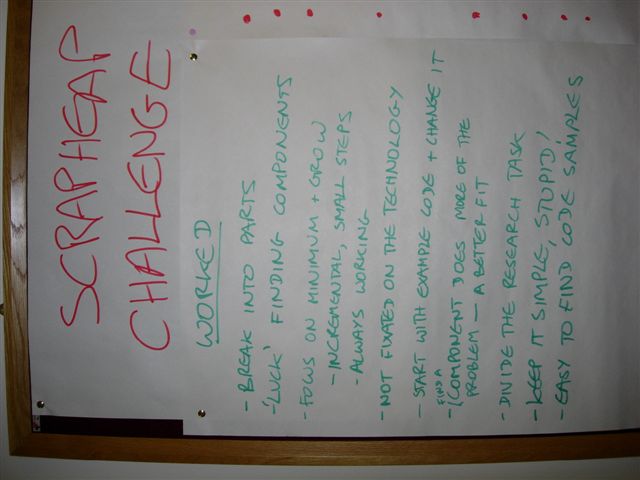 SCRAPHEAP
CHALLENGE
WORKED
- BREAK INTO PARTS
- 'LUCK' FINDING COMPONENTS
- FOCUS ON MINIMUM + GROW
- INCREMENTAL, SMALL STEPS
- ALWAYS WORKING
- NOT FIXATED ON THE TECHNOLOGY
- START WITH EXAMPLE CODE + CHANGE IT
- FIND A (COMPONENT DOES MORE OF THE
PROBLEM - A BETTER FIT
- DIVIDE THE RESEARCH TASK
- KEEP IT SIMPLE, STUPID!
- EASY TO FIND CODE SAMPLES